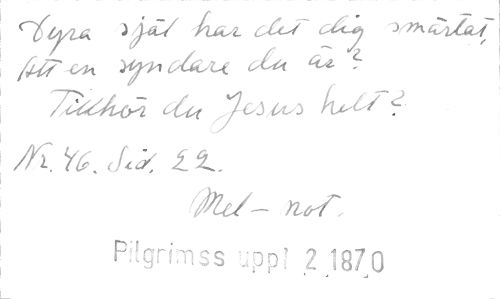 Dyra själ har det dig smärtat,
Att en syndare du är?
Tillhör du Jesus helt?
Nr. 46. Sid. 22.
Mel – not.
Pilgrimss uppl 2 1870